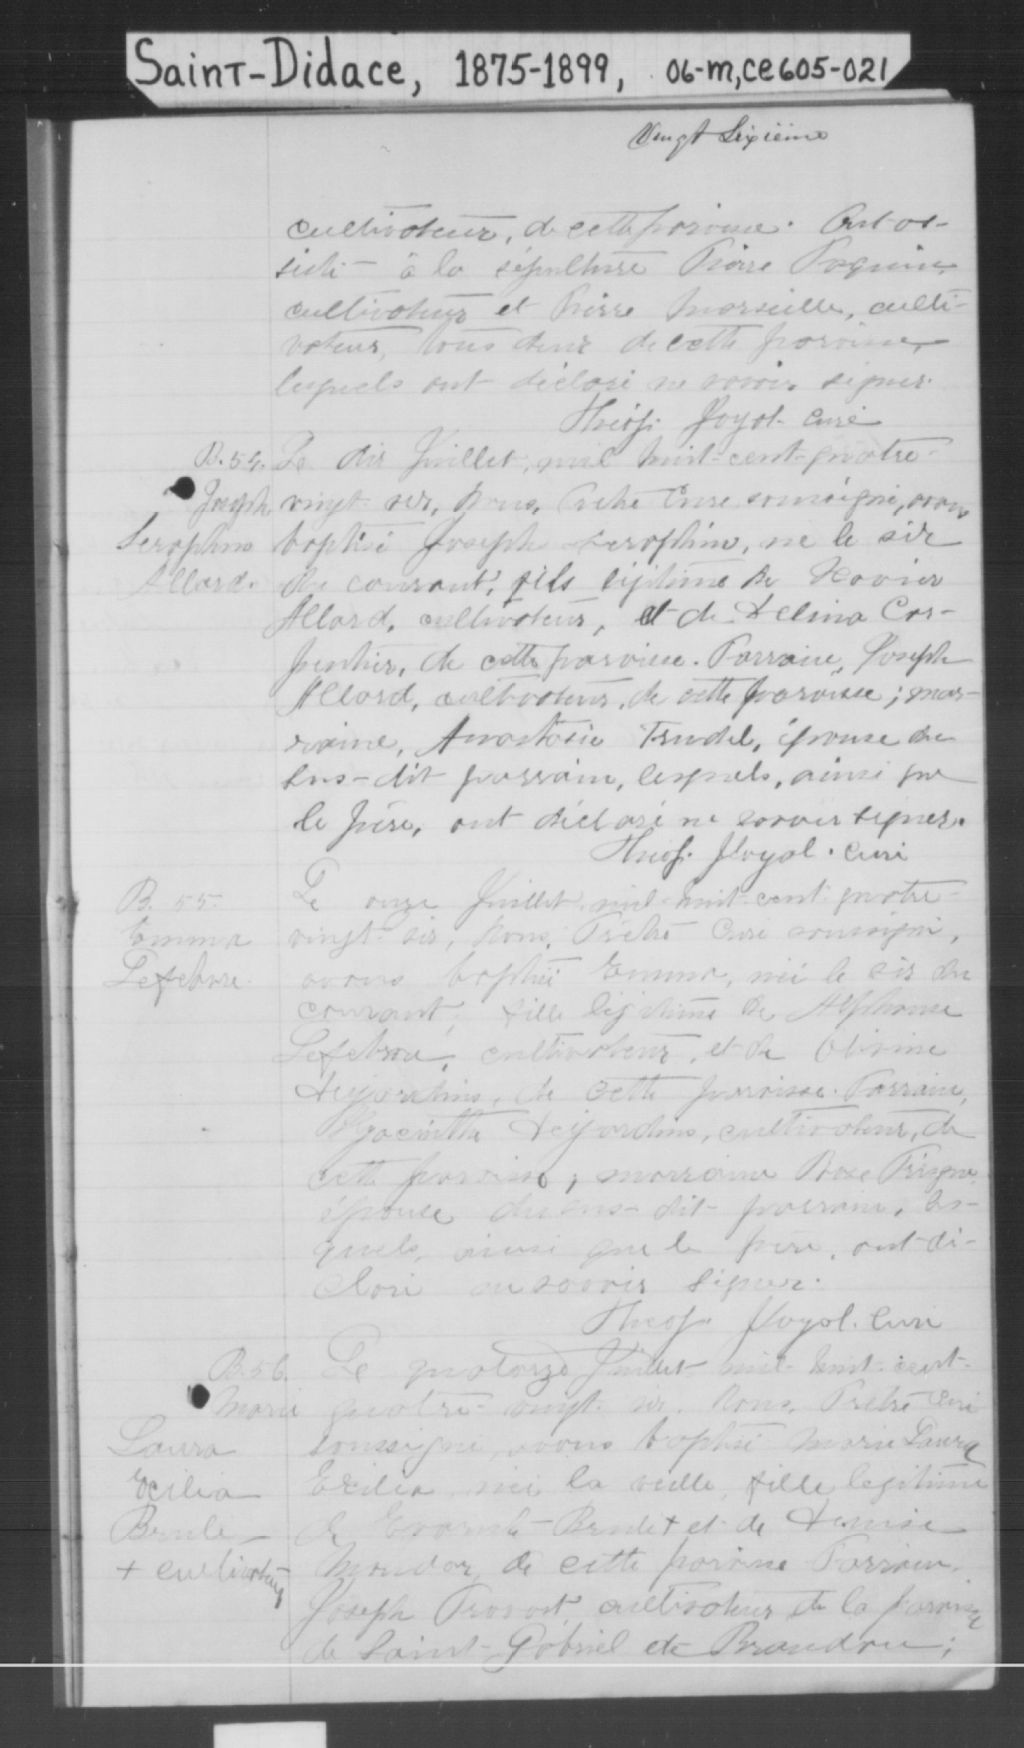 Saint-Didace, 1875-1899, 06-m,ce605-021
Vingt Sixième
cultivateur, de cette paroisse. Ont as-
sisté à la sépulture Pierre Paquin,
cultivateur et Pierre Marseille, culti-
vateur, tous deux de cette paroisse,
lesquels ont déclaré ne savoir signer.
Théop. Joyal. Curé
B.54. Le dix Juillet, mil huit-cent-quatre-
Joseph vingt-six, Nous, Prêtre Curé soussigné, avons
Seraphin baptisé Joseph Seraphin, né le six
Allard. du courant, fils légitime de Xavier
Allard, cultivateur, et de Delina Car-
pentier, de cette paroisse. Parrain, Joseph
Allard, cultivateur, de cette paroisse; mar-
raine, Anastasie Trudel, épouse du
sus-dit parrain, lesquels, ainsi que
le père, ont déclaré ne savoir signer.
Théop. Joyal. Curé
B. 55. Le onze Juillet mil-huit-cent quatre-
Emma vingt-six, Nous, Prêtre Curé soussigné,
Lefebvre. avons baptisé Emma, née le six du
courant, fille légitime de Alphonse
Lefebvre, cultivateur, et de
Desjardins, de cette paroisse. Parrain,
Hyacinthe Desjardins, cultivateur, de
cette paroisse; marraine Rose
épouse du sus-dit parrain, les-
quels, ainsi que le père, ont dé-
claré ne savoir signer.
Théop. Joyal. Curé
B.56. Le quatorze Juillet mil-huit-cent-
Marie quatre-vingt-six, Nous, Prêtre Curé
Laura soussigné, avons baptisé Marie Laura
Exilia Exilia, née la veille, fille légitime
Brulé de Evariste Brulé + et de Denise
+ cultivateur Mondor, de cette paroisse. Parrain,
Joseph Provost, cultivateur de la paroisse
de Saint-Gabriel de Brandon;